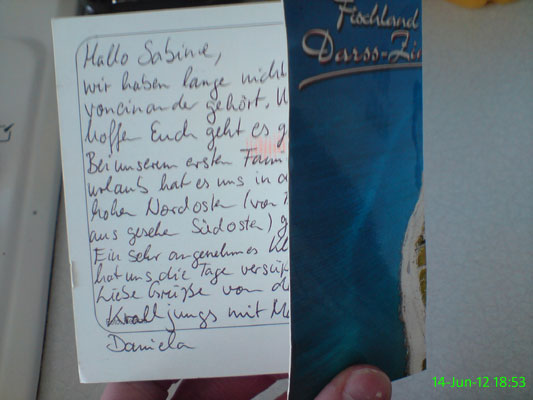 Hallo Sabine,
wir haben lange nicht
voneinander gehört. W
hoffen Euch geht es g
Bei unserem ersten Fami
urlaub hat es uns in d
hohen Nordosten (von
aus gesehen Südosten) g
Ein sehr angenehmes Kl
hat uns die Tage versüß
Liebe Grüße von de
Kralljungs mit M
Daniela
Fischland
Darss-Zin
14-Jun-12 18:53